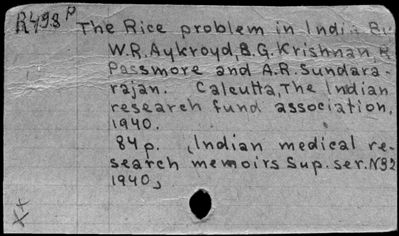 R493 P The Rice problem in India. By
W.R. Aykroyd, B.G. Krishnan, R.
Passmore and A.R. Sundara-
rajan. Calcutta, The Indian
research fund association,
1940.
84 p. (Indian medical re-
search memoirs Sup. ser. N32
1940)
xx